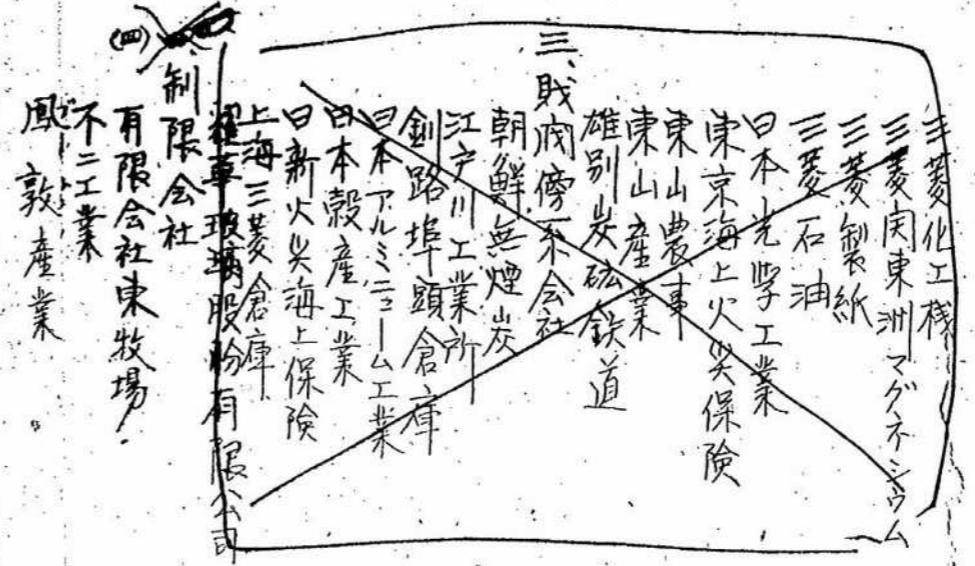 三菱化工機
三菱関東洲マグネシウム
三菱製紙
三菱石油
日本光学工業
東京海上火災保険
東山農事
東山産業
雄別炭砿鉄道
三、財閥傍系会社
朝鮮無煙炭
江戸川工業所
釧路埠頭倉庫
日本アルミニューム工業
日本穀産工業
日新火災海上保険
上海三菱倉庫
玻璃股份有限公司
(四)
制限会社
有限会社東牧場
不二工業
鳳敦産業